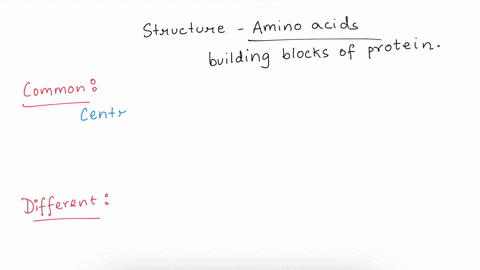 Structure - Amino acids
building blocks of protein.
Common:
Centr
Different: